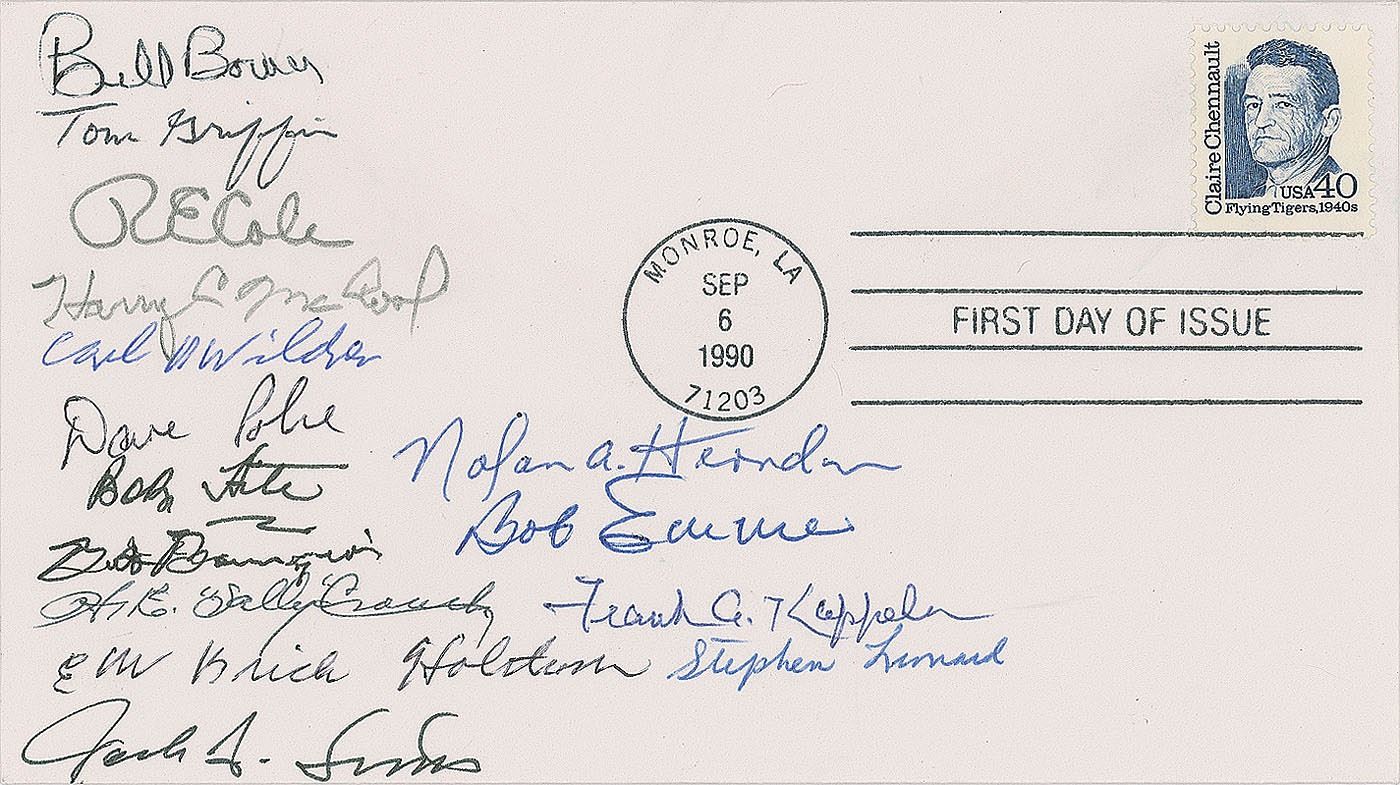 Bill Bower
Tom Griffin
R E Cole
Harry C McCool
Carl N Wildner
Dave Pohl
Bob Hite
H.E. "Sally" Crouch
EW Brick Holstrom
Jack A. Sims
Nolan A. Herndon
Bob Emmens
Frank A. Kappeler
Stephen
Claire Chennault
USA 40
Flying Tigers, 1940s
MONROE, LA
SEP
6
1990
71203
FIRST DAY OF ISSUE